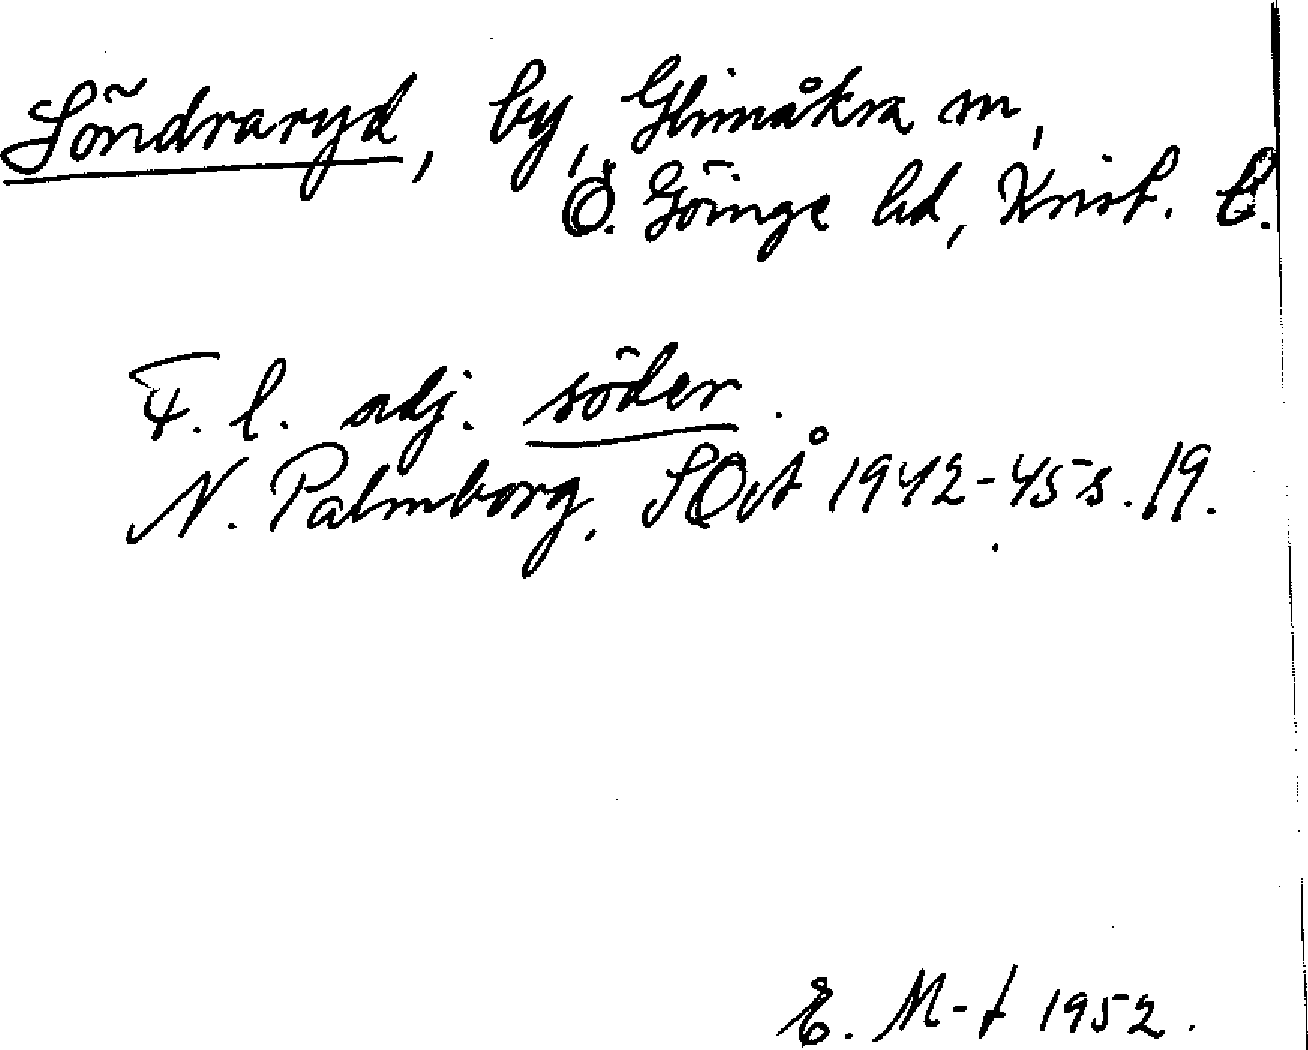 Söndraryd, by, Glimåkra sn,
Ö. Göinge hd, Krist. l.
F. l. adj. söder.
N. Palmborg, SOÅ 1942-45 s. 19.
E. M-t 1952.